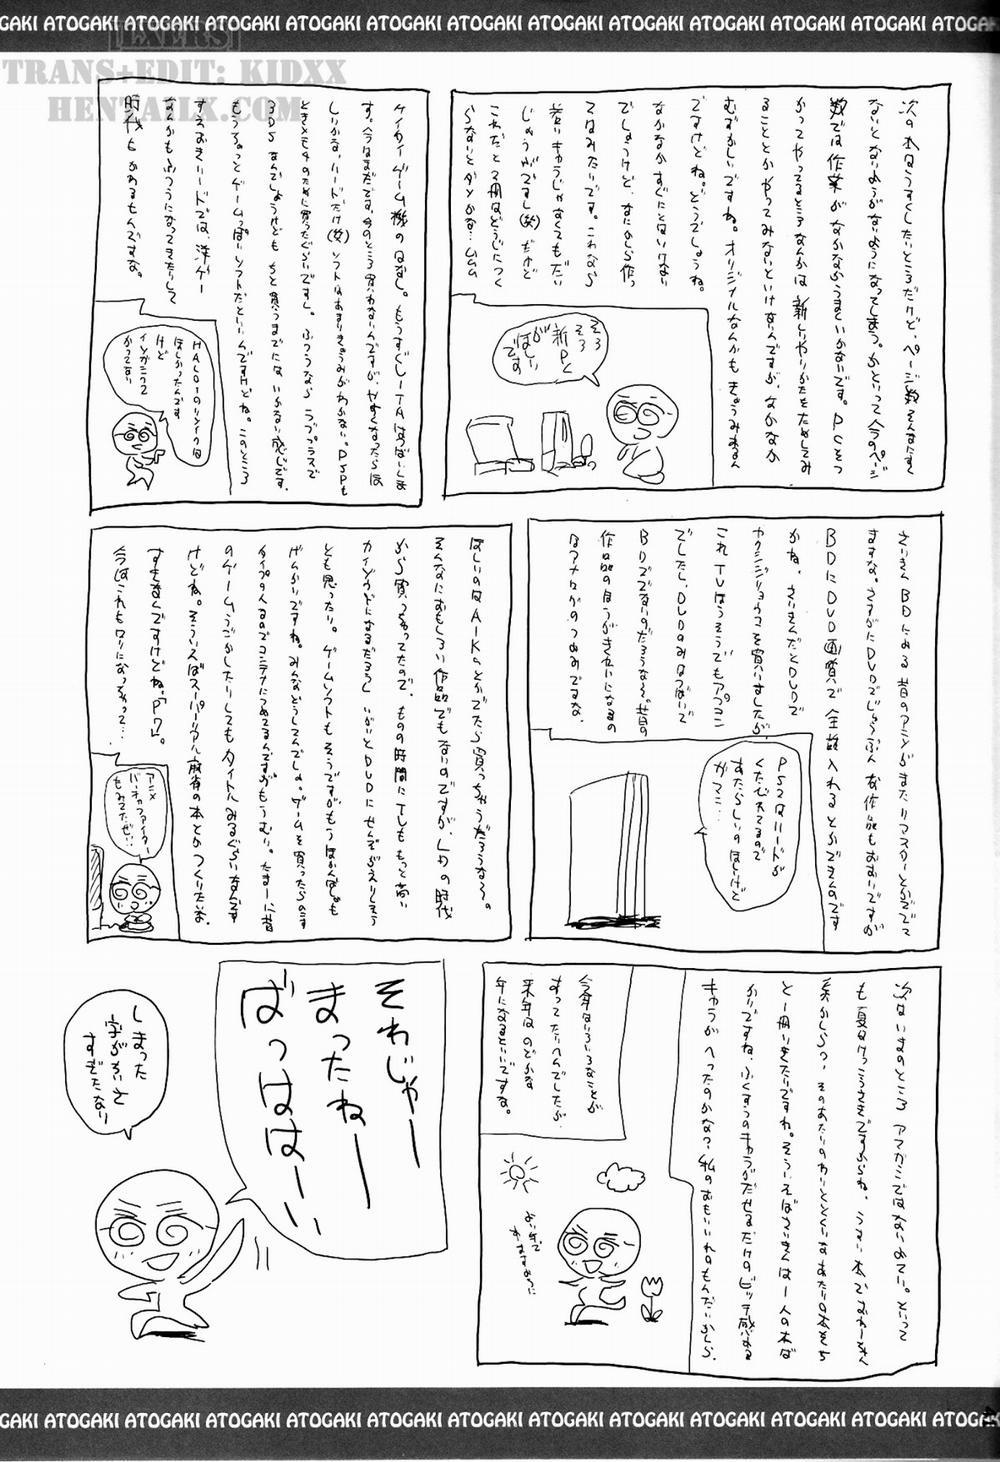 GAKI ATOGAKI ATOGAKI ATOGAKI ATOGAKI ATOGAKI ATOGAKI ATOGAKI ATOGAKI ATOGAKI ATOGA
[EXERS]
TRANS+EDIT: KIDXX
HENTAILX.COM
次の本はうすくしたいところだけど、ページ数そんなにすく
ないとないようがないようになってしまう。かといって今のページ
数では作業がなかなかうまくいかないです。PCをつ
かってやってるところなんかは新しいやりかたをためしてみ
ることとかやってみないといけないんですが、なかなか
むずかしいですね。オリジナルなんかもきょうみあるん
ですけどね。どうでしょうね。
なかなかすぐにとはいけない
でしょうけど、なにかしら作っ
てはみたいです。これなら
若いキャラじゃなくてもだい
じょうぶですし(笑)だけど
これだと2冊はどうじにつく
らないとダメかな…ムムム
そろ
そろ
新PC
が
ほしい
です
ケイタイゲーム機のはなし。もうすぐVITAはつばいしま
す。今はまだです。今のところ買わないんですが、やすくなったらほ
しいかな、ハードだけ(笑)ソフトはあまりきょうみがわかない。PSPも
ときメモ4のために買ったぐらいですし。ふつうならラブプラスで
3DSなんでしょうけどもちと買うまでにはいかない感じです。
もうちょっとゲームっぽいソフトだといいんですけどね。このところ
すえおきハードでは、洋ゲー
なんかもふつうになってきたりして
時代もかわるもんですな。
HALO1のリメイクは
ほしかったんです
けど
インがニガくて
かってない
さいきんBDにある昔のアニメがまたリマスターとかででて
ますな。さすがにDVDでじゅうぶんな作品もおおいですが
BDにDVD画質で全話入れるとかできんのです
かね。さいきんだとDVDで
カクシジョウコを買いましたが、
これTVはうそうでもアプコン
でしたし、DVDのみはつばいで
BDででないのだろうな〜。昔の
作品のほうがきれいになるの
はアナログのつよみですな。
PS2はハードが
くたびれてるので
あたらしいのほしけど
ガマン…
ほしいのはAIKのとかでたら買っちゃうだろうな〜。
そんなにおもしろい作品でもないのですが、LDの時代
から買っちゃってたので、ものの時間にしてももっと高い
カイゾウドになるだろうし いがいとDVDにせんでがえりしそう
とも思ったり。ゲームソフトもそうですがもうほかんばしょも
げんかいですね。みんなどうしてんでしょ。ゲームを買ったらのこす
タイプの人なのでコンテナにつめてるんですがもうむり。たまーに昔
のゲームうごかしたりしてもタイトルみるぐらいなんです
けどね。そういえばスーパーリアル麻雀の本とかつくりたいな。
すきなんですけどね。「P7」。
今はこれもロリになっちゃって…
アニメ
バーチャファイター
もみてたぜい…
次はいまのところアマガミではないよてい。といって
も夏はけっこうさきですからね。うすい本でなわーぞく
系からっつ、そのあたりのわいとくいなあたりの本をも
と一冊いきたいですね。そういえばさいきんは一人の本ば
かりですね、ふくすうのキャラがだせるだけのピッチ感ある
キャラがへったのかな?私のおもいいれのもんだいかしら。
今年はいろいろなことが
ありたいへんでしたが、
来年はのどかな
年になるといいですな。
よい年で
ありますように
それじゃー
まったねー
ばっはは〜い
しまった
字がかいと
すぎたなり
GAKI ATOGAKI ATOGAKI ATOGAKI ATOGAKI ATOGAKI ATOGAKI ATOGAKI ATOGAKI ATOGAKI ATOG